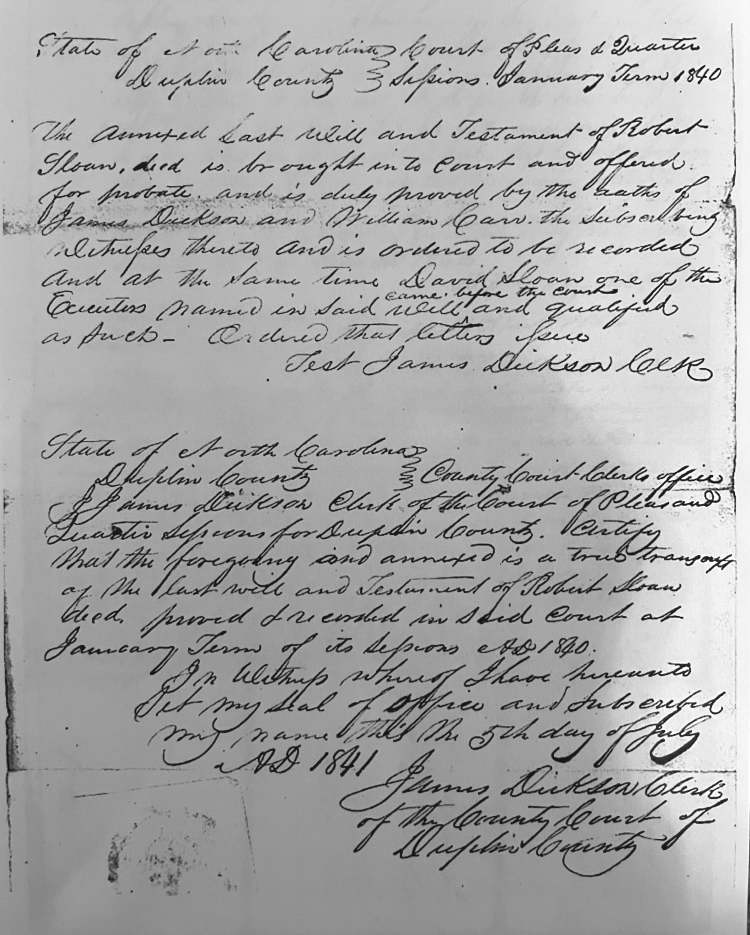 State of North Carolina Court of Pleas & Quarter
Duplin County Sessions January Term 1840
The annexed Last Will and Testament of Robert
Sloan, decd is brought into court and offered
for probate and is duly proved by the oaths of
James Dickson and William Carr the Subscribing
Witnesses thereto and is ordered to be recorded
And at the same time David Sloan one of the
came before the court
Executors named in said Will and qualified
as such - Ordered that letters issue
Test James Dickson Clk
State of North Carolina
Duplin County County Court Clerks office
I James Dickson Clerk of the Court of Pleas and
Quarter Sessions for Duplin County. Certify
that the foregoing and annexed is a true transcript
of the last will and Testament of Robert Sloan
decd, proved & recorded in said Court at
January Term of its Sessions AD 1840.
In Witness whereof I have hereunto
Set my seal of office and subscribed
my name this the 5th day of July
AD 1841
James Dickson Clerk
of the County Court of
Duplin County